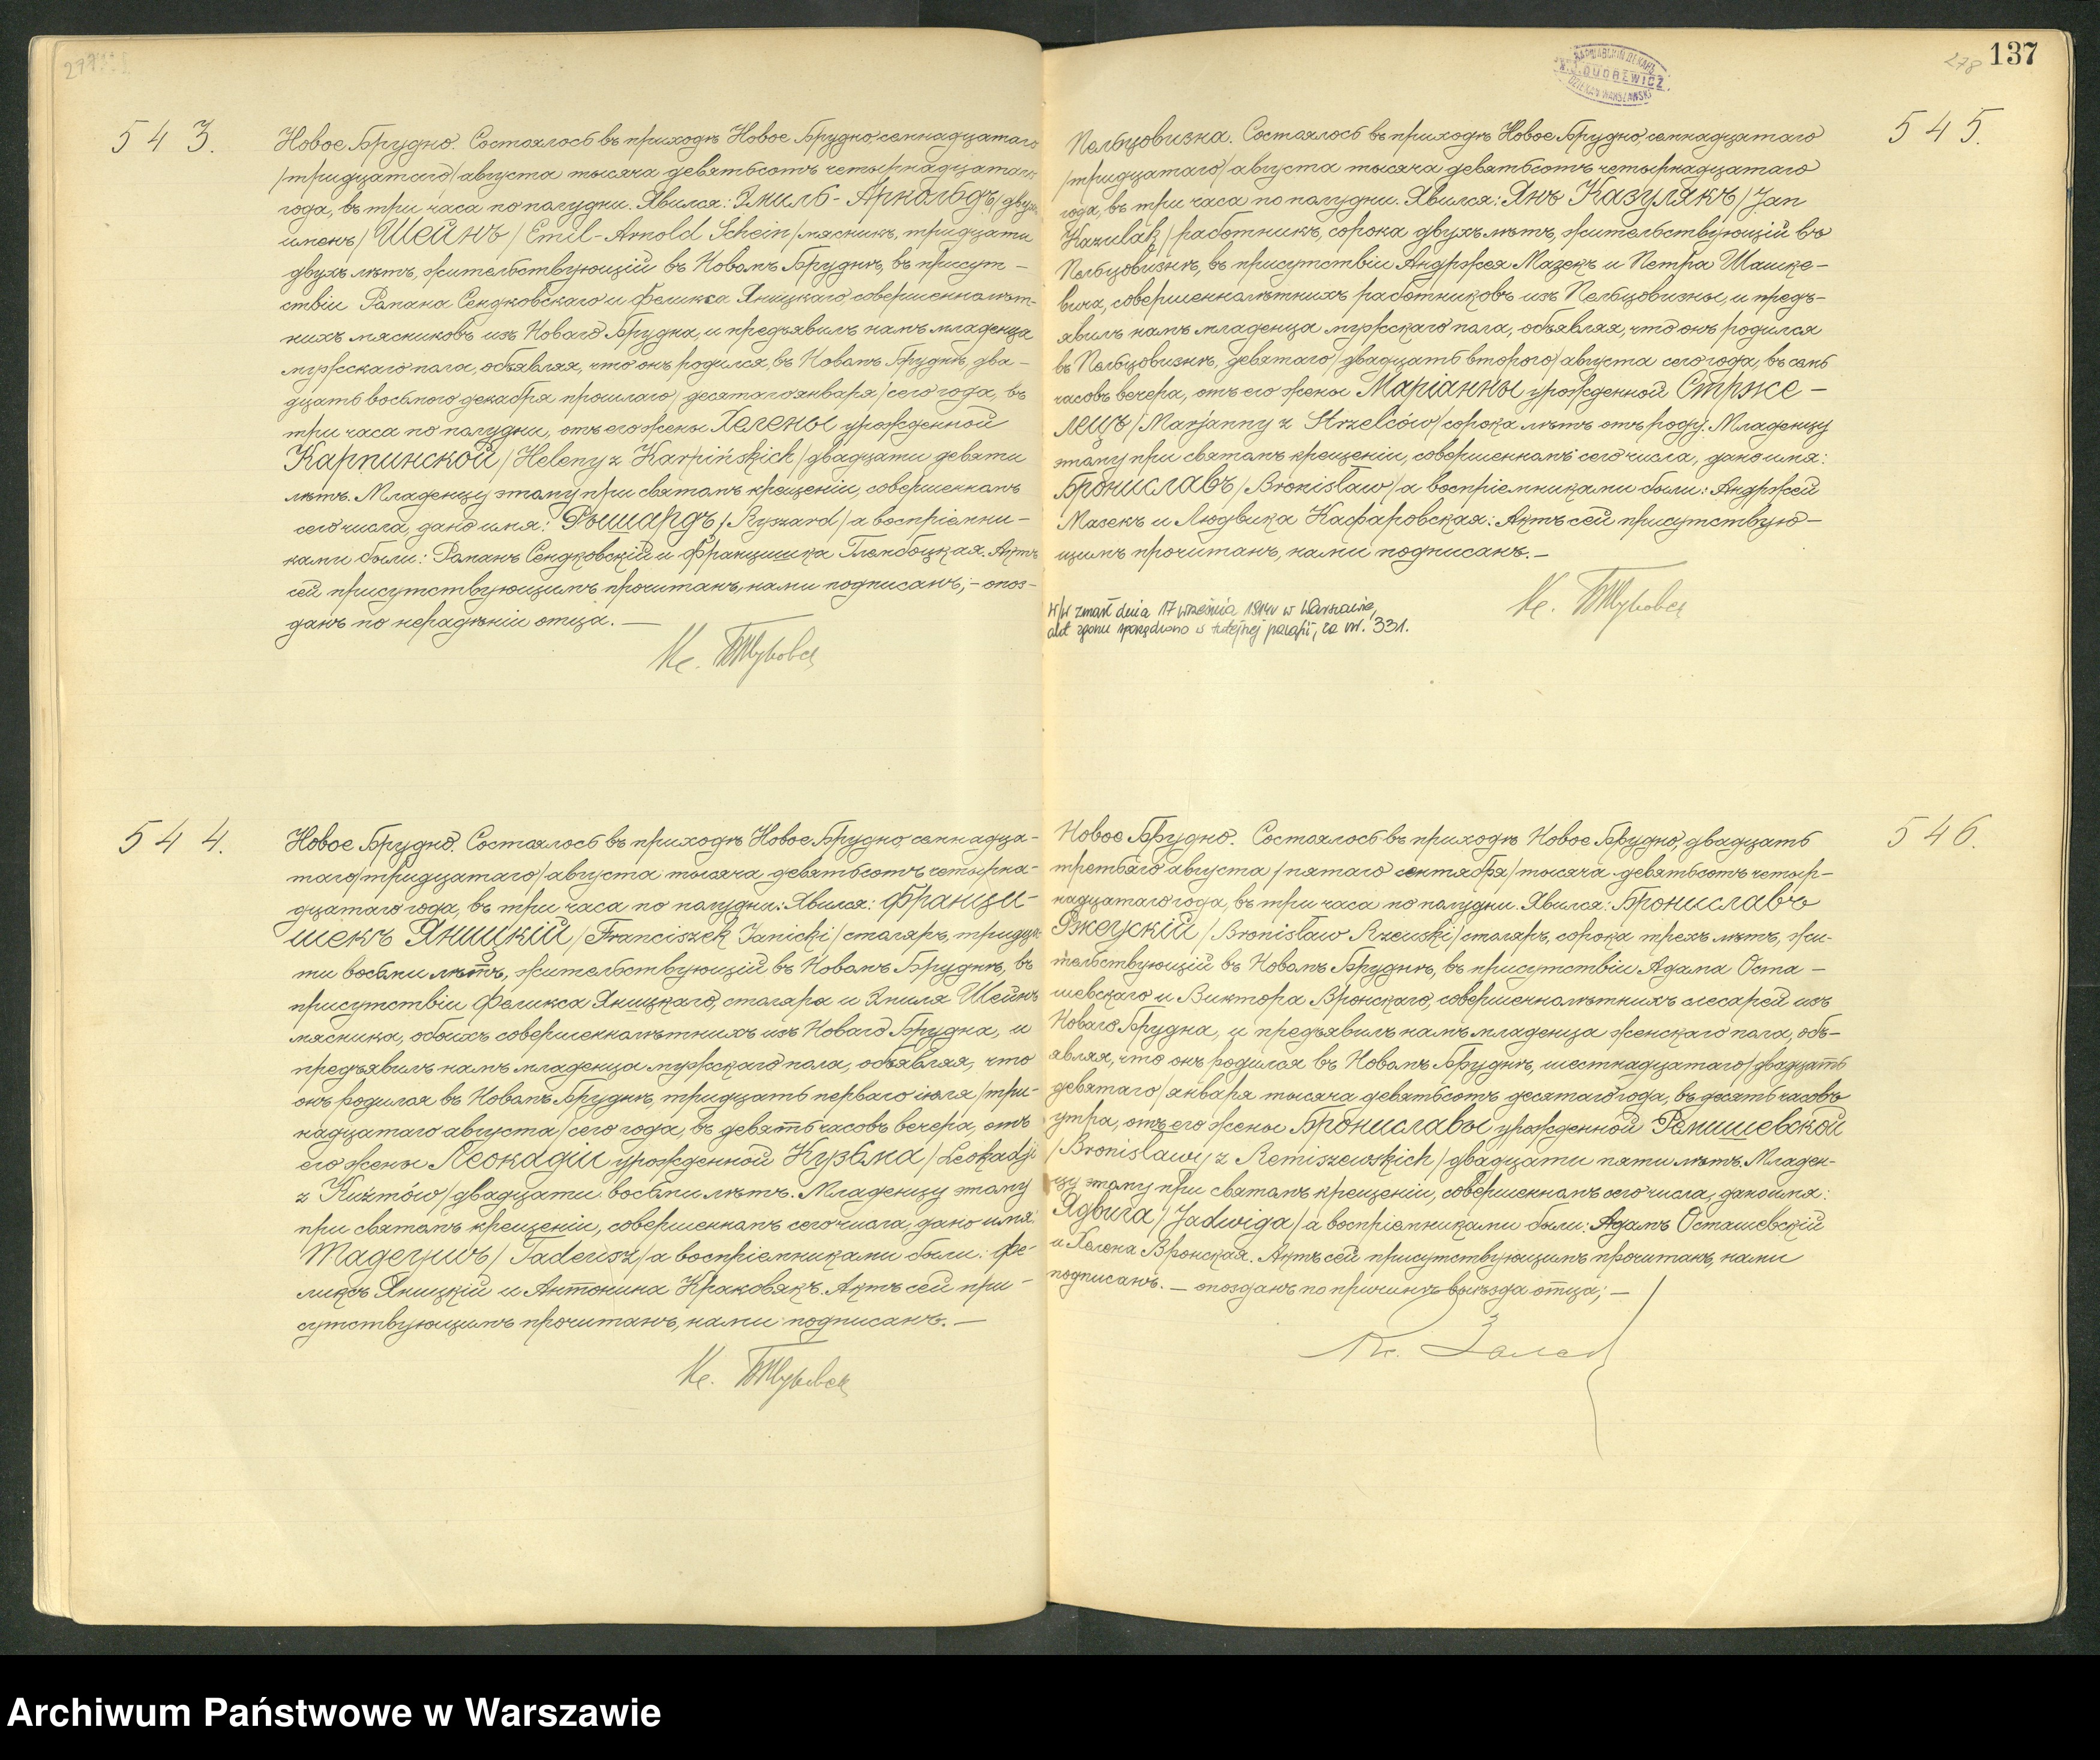 137
278
277
543.
Новое Брудно. Состоялось въ приходѣ Новое Брудно, семнадцатаго
/тридцатаго/ августа тысяча девятьсотъ четырнадцатаго
года, въ три часа по полудни. Явился: Эмиль-Арнольдъ /двухъ
именъ/ Шейнъ /Emil-Arnold Schein/ мясникъ, тридцати
двухъ лѣтъ, жительствующій въ Новомъ Бруднѣ, въ присут-
ствіи Романа Сендковскаго и Феликса Яницкаго, совершеннолѣт-
нихъ мясниковъ изъ Новаго Брудна, и предъявилъ намъ младенца
мужскаго пола, объявляя, что онъ родился, въ Новомъ Бруднѣ, два-
дцать восьмого декабря прошлаго /десятаго января/ сего года, въ
три часа по полудни, отъ его жены Хелены урожденной
Карпинской /Heleny z Karpińskich/ двадцати девяти
лѣтъ. Младенцу этому при святомъ крещеніи, совершенномъ
сего числа, дано имя: Рышардъ /Ryszard/ а воспріемни-
ками были: Романъ Сендковскій и Францишка Глембоцкая. Актъ
сей присутствующимъ прочитанъ, нами подписанъ; - опоз-
данъ по нерадѣнію отца. —
Кс.
544.
Новое Брудно. Состоялось въ приходѣ Новое Брудно, семнадца-
таго /тридцатаго/ августа тысяча девятьсотъ четырна-
дцатаго года, въ три часа по полудни. Явился: Франци-
шекъ Яницкій /Franciszek Janicki/ столяръ, тридца-
ти восьми лѣтъ, жительствующій въ Новомъ Бруднѣ, въ
присутствіи Феликса Яницкаго, столяра и Эмиля Шейнъ
мясника, обоихъ совершеннолѣтнихъ изъ Новаго Брудна, и
предъявилъ намъ младенца мужскаго пола, объявляя, что
онъ родился въ Новомъ Бруднѣ, тридцать перваго іюля /три-
надцатаго августа/ сего года, въ девять часовъ вечера, отъ
его жены Леокадіи урожденной Кузьма /Leokadji
z Kuźmów/ двадцати восьми лѣтъ. Младенцу этому
при святомъ крещеніи, совершенномъ сего числа, дано имя:
Тадеушъ /Tadeusz/ а воспріемниками были: Фе-
ликсъ Яницкій и Антонина Краковякъ. Актъ сей при-
сутствующимъ прочитанъ, нами подписанъ. —
Кс.
545.
Пельцовизна. Состоялось въ приходѣ Новое Брудно, семнадцатаго
/тридцатаго/ августа тысяча девятьсотъ четырнадцатаго
года, въ три часа по полудни. Явился: Янъ Казулякъ /Jan
Kazulak/ работникъ, сорока двухъ лѣтъ, жительствующій въ
Пельцовизнѣ, въ присутствіи Андржея Мазекъ и Петра Шашке-
вича, совершеннолѣтнихъ работниковъ изъ Пельцовизны, и предъ-
явилъ намъ младенца мужскаго пола, объявляя, что онъ родился
въ Пельцовизнѣ, девятаго /двадцать второго/ августа сего года, въ семь
часовъ вечера, отъ его жены Маріанны урожденной Стрже-
лецъ /Marjanny z Strzelców/ сорока лѣтъ отъ роду. Младенцу
этому при святомъ крещеніи, совершенномъ сего числа, дано имя:
Брониславъ /Bronisław/ а воспріемниками были: Андржей
Мазекъ и Людвика Кафаровская. Актъ сей присутствую-
щимъ прочитанъ, нами подписанъ. —
Кс.
W/w zmarł dnia 17 września 1914r w Warszawie,
akt zgonu sporządzono w tutejszej parafii, za nr. 331.
546.
Новое Брудно. Состоялось въ приходѣ Новое Брудно, двадцать
третьяго августа /пятаго сентября/ тысяча девятьсотъ четыр-
надцатаго года, въ три часа по полудни. Явился: Брониславъ
Ржеускій /Bronisław Rzeuski/ столяръ, сорока трехъ лѣтъ, жи-
тельствующій въ Новомъ Бруднѣ, въ присутствіи Адама Оста-
шевскаго и Виктора Вронскаго, совершеннолѣтнихъ слесарей изъ
Новаго Брудна, и предъявилъ намъ младенца женскаго пола, объ-
являя, что онъ родился въ Новомъ Бруднѣ, шестнадцатаго /двадцать
девятаго/ января тысяча девятьсотъ десятаго года, въ десять часовъ
утра, отъ его жены Брониславы урожденной Ремишевской
/Bronisławy z Remiszewskich/ двадцати пяти лѣтъ. Младен-
цу этому при святомъ крещеніи, совершенномъ сего числа, дано имя:
Ядвига /Jadwiga/ а воспріемниками были: Адамъ Осташевскій
и Хелена Вронская. Актъ сей присутствующимъ прочитанъ, нами
подписанъ. — опозданъ по причинѣ выѣзда отца; —
Archiwum Państwowe w Warszawie